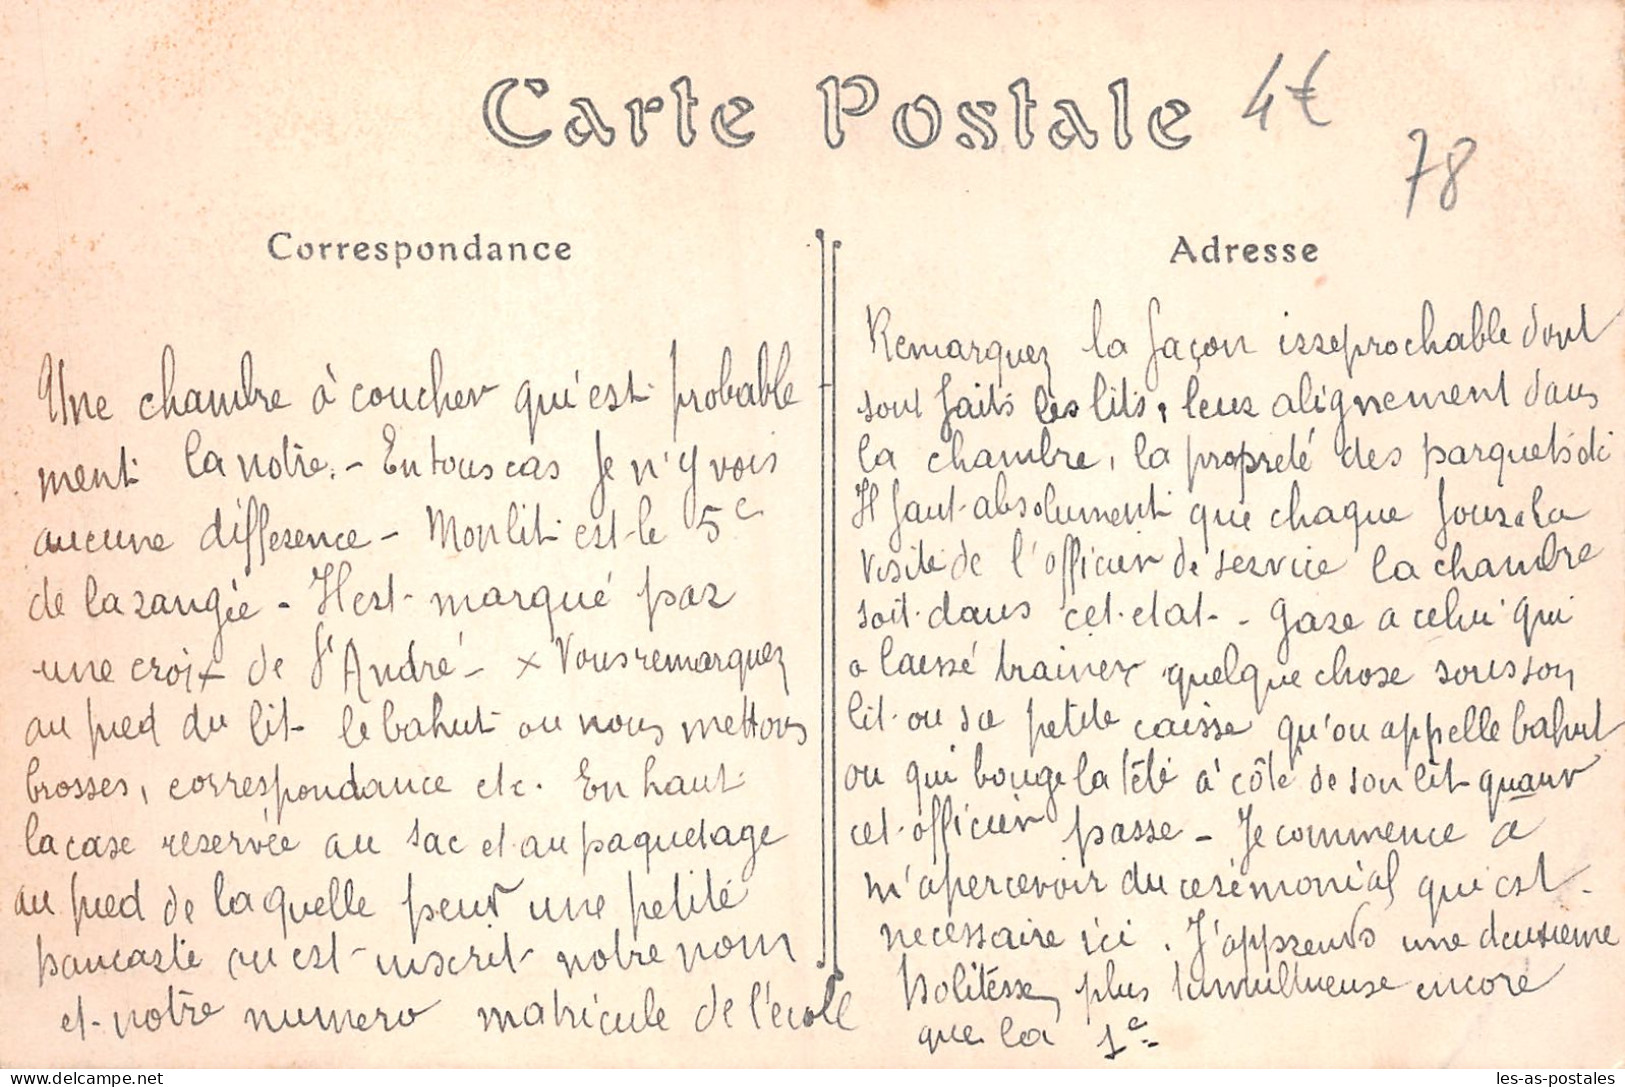 Carte Postale
4€
78
Correspondance
Une chambre à coucher qui est probable
ment la notre. - En tous cas je n'y vois
aucune différence - Mon lit est le 5e
de la rangée - Il est marqué par
une croix de St André - x Vous remarquez
au pied du lit le bahut ou nous mettons
brosses, correspondance etc. En haut
la case reservée au sac et au paquetage
au pied de laquelle pend une petite
pancarte ou est inscrit notre nom
et notre numero matricule de l'école
Adresse
Remarquez la façon irreprochable dont
sont faits les lits, leur alignement dans
la chambre, la propreté des parquets etc
Il faut absolument que chaque jour a la
visite de l'officier de service la chambre
soit dans cet etat - Gare a celui qui
a laissé trainer quelque chose sous son
lit ou sa petite caisse qu'on appelle bahut
ou qui bouge la tête à côté de son lit quand
cet officier passe - Je commence a
m'apercevoir du cérémonial qui est
necessaire ici. J'apprends une deuxieme
politesse plus tumultueuse encore
que la 1e -
les-as-postales